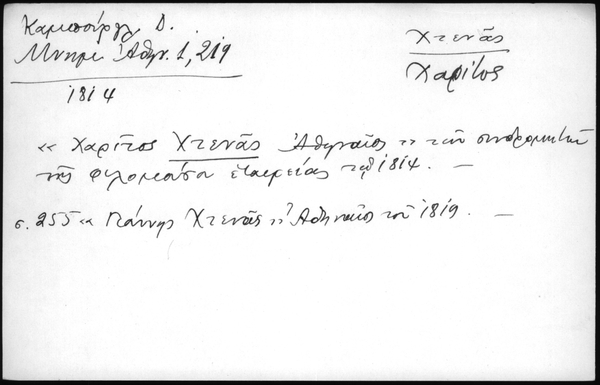 Καμπούργλ, Δ.
Μνημ. Ἀθην. 1, 219
1814
Χτενᾶς
Χαρίτος
« Χαρίτος Χτενᾶς Ἀθηναῖος » τῶν συνδρομητῶν
τῆς Φιλομούσου ἑταιρείας τοῦ 1814. —
σ. 255 « Γιάννης Χτενᾶς » Ἀθηναῖος τοῦ 1819. —